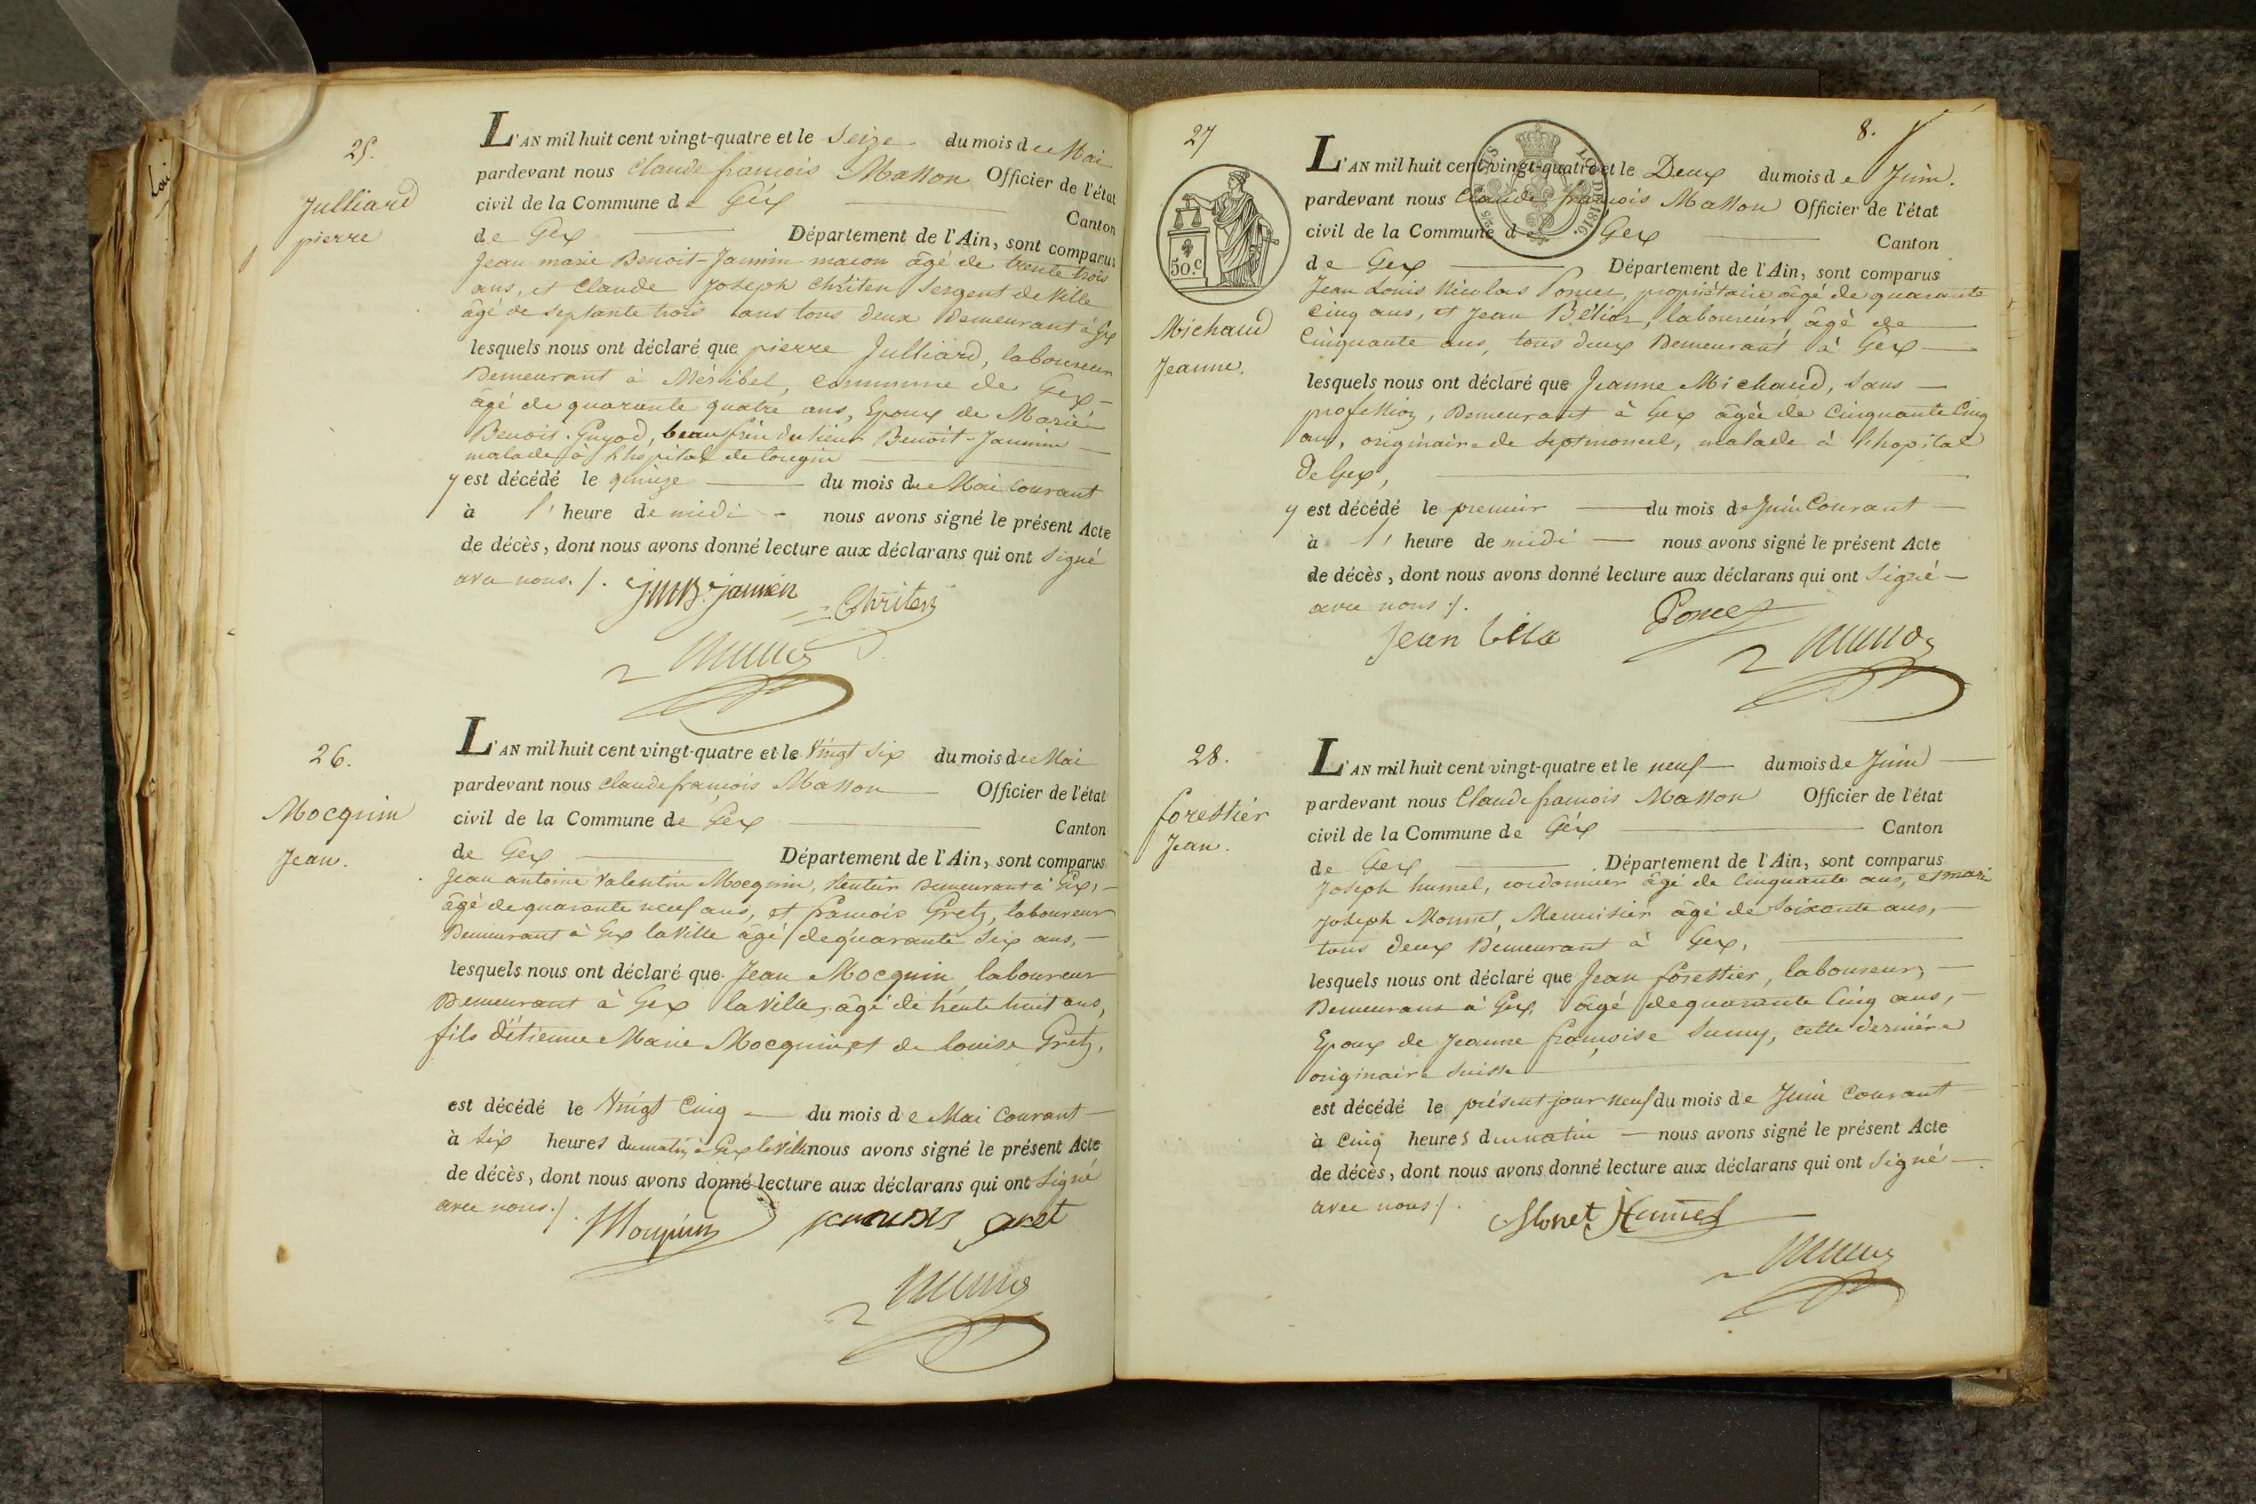 25.
Julliard
pierre
L'AN mil huit cent vingt-quatre et le Seize du mois de Mai
pardevant nous Claude françois Masson Officier de l'état
civil de la Commune de Géx Canton
de Gex Département de l'Ain, sont comparus
Jean marie Benoit-Jannin macon âgé de trente trois
ans, et Claude Joseph Chriten Sergent de Ville
âgé de septante trois ans tous deux Demeurant à Gex
lesquels nous ont déclaré que pierre Julliard, laboureur
Demeurant à Méribel, commune de Gex
âgé de quarante quatre ans, Epoux de Marie
Benoit-Guyod, beau frère du sieur Benoit-Jannin
malade à l'hopital de tougin
y est décédé le quinze du mois de Mai Courant
à l' heure de midi nous avons signé le présent Acte
de décès, dont nous avons donné lecture aux déclarans qui ont signé
avec nous./.
JMB. jannin Chriten
26.
Mocquin
Jean.
L'AN mil huit cent vingt-quatre et le Vingt Six du mois de Mai
pardevant nous Claude françois Masson Officier de l'état
civil de la Commune de Gex Canton
de Gex Département de l'Ain, sont comparus
Jean antoine Valentin Mocquin, Rentier Demeurant à Gex,
âgé de quarante neuf ans, et françois Gretz, laboureur
Demeurant à Gex la Ville âgé de quarante Six ans,
lesquels nous ont déclaré que Jean Mocquin laboureur
Demeurant à Gex la Ville, âgé de trente huit ans,
fils d'étienne Marie Mocquin, et de louise Gretz,
est décédé le Vingt Cinq du mois de Mai Courant
à Six heures du matin, à Gex la Ville nous avons signé le présent Acte
de décès, dont nous avons donné lecture aux déclarans qui ont Signé
avec nous./.
Mocquin françois gret
27
8.
LOI DE 1816.
50.c
Michaud
Jeanne.
L'AN mil huit cent vingt-quatre et le Deux du mois de Juin.
pardevant nous Claude françois Masson Officier de l'état
civil de la Commune de Gex Canton
de Gex Département de l'Ain, sont comparus
Jean Louis Nicolas Poncet, propriétaire âgé de quarante
Cinq ans, et Jean laboureur, âgé de
Cinquante ans, tous deux Demeurant à Gex
lesquels nous ont déclaré que Jeanne Michaud, sans
profession, Demeurant à Gex âgée de Cinquante Cinq
ans, originaire de Septmoncel, malade à l'hopital
de Gex,
y est décédé le premier du mois de Juin Courant
à l' heure de midi nous avons signé le présent Acte
de décès, dont nous avons donné lecture aux déclarans qui ont Signé
avec nous./.
Jean Poncet
28.
forestier
Jean.
L'AN mil huit cent vingt-quatre et le neuf du mois de Juin
pardevant nous Claude françois Masson Officier de l'état
civil de la Commune de Géx Canton
de Gex Département de l'Ain, sont comparus
Joseph humel, cordonnier âgé de Cinquante ans, et marie
Joseph Monnet, Menuisier âgé de Soixante ans,
tous deux Demeurant à Gex,
lesquels nous ont déclaré que Jean forestier, laboureur,
Demeurant à Gex, âgé de quarante Cinq ans,
Epoux de Jeanne françoise cette dernière
originaire Suisse
est décédé le présent jour neuf du mois de Juin Courant
à Cinq heures du matin nous avons signé le présent Acte
de décès, dont nous avons donné lecture aux déclarans qui ont Signé
avec nous./.
Monet Humel